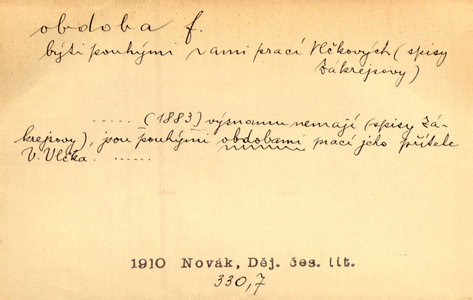 obdoba f.
býti pouhými ~ami prací Vlčkových (spisy
Zákrejsovy)
..... (1883) významu nemají (spisy Zá-
krejsovy), jsou pouhými obdobami prací jeho přítele
V. Vlčka. ......
1910 Novák, Děj. čes. lit.
330,7